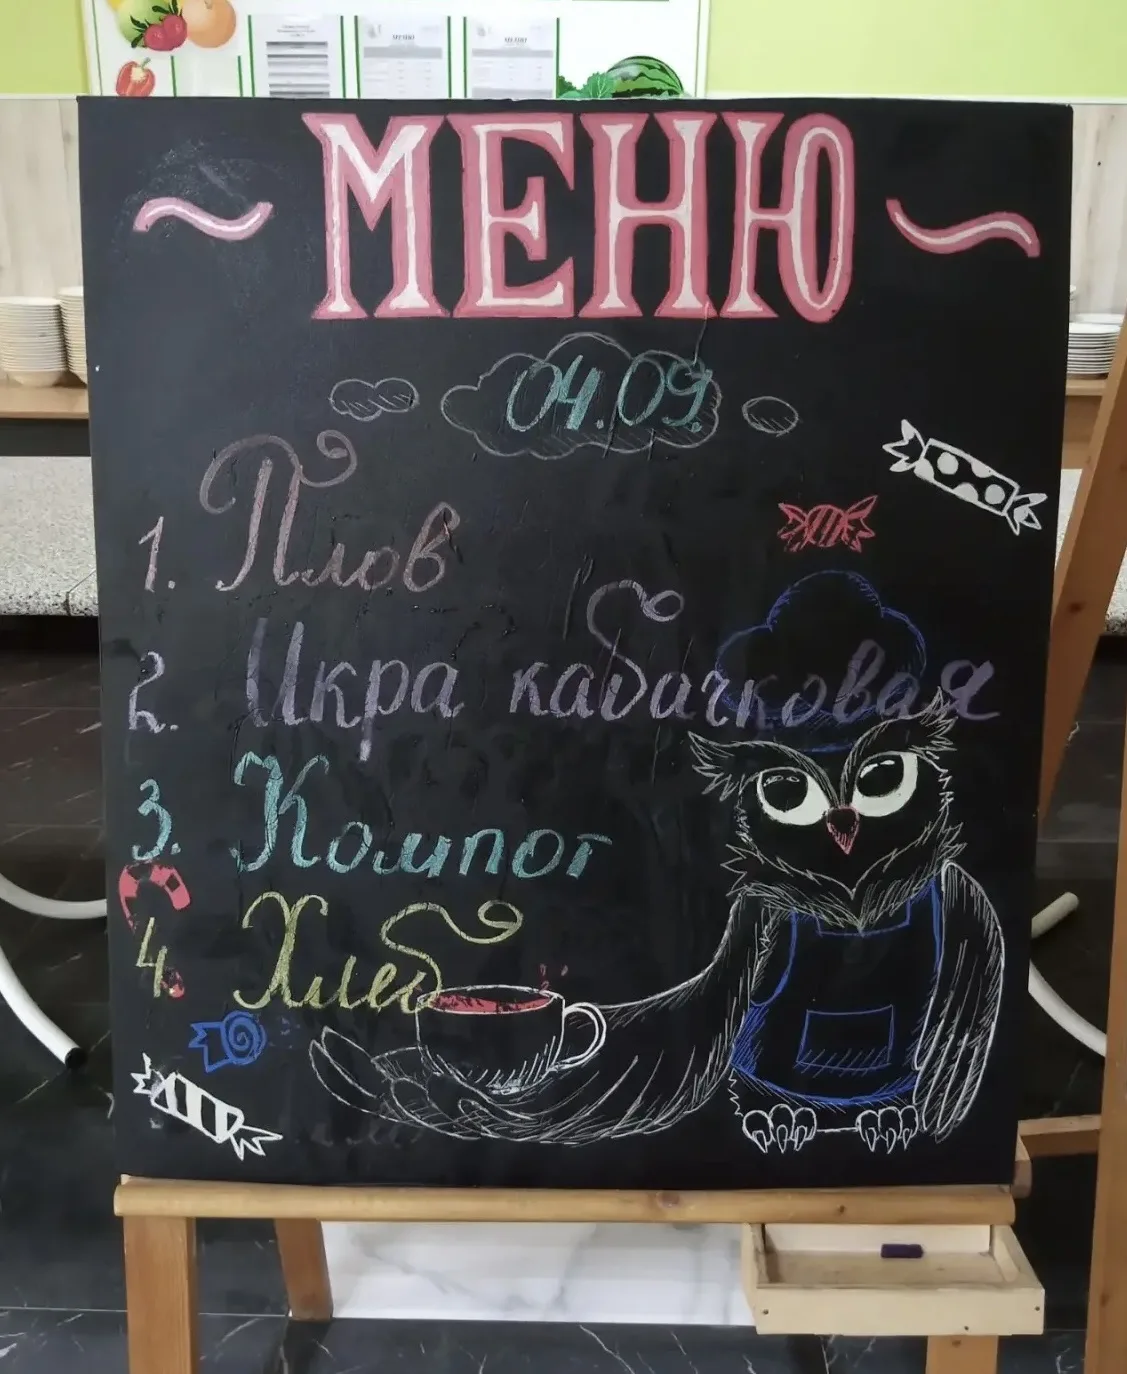 МЕНЮ
МЕНЮ
~ МЕНЮ ~
04.09.
1. Плов
2. Икра кабачковая
3. Компот
4. Хлеб